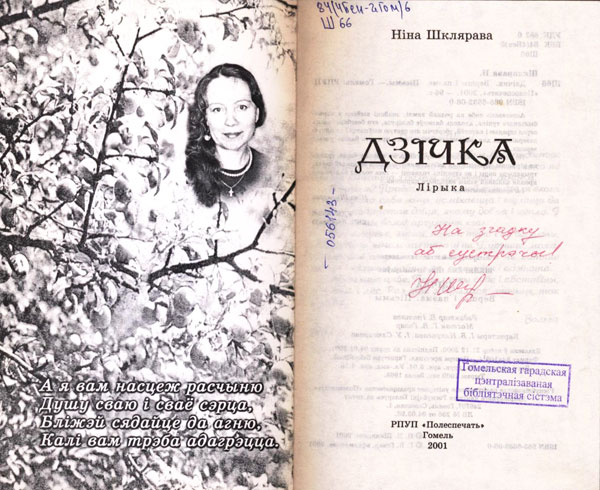 А я вам насцеж расчыню
Душу сваю і сваё сэрца,
Бліжэй сядайце да агню,
Калі вам трэба адагрэцца.
84/4Беи-2Гом/6
Ш 66
056143-
Ніна Шклярава
ДЗІЧКА
Лірыка
На згадку
аб сустрэчы!
Гомельская гарадская
цэнтралізаваная
бібліятэчная сістэма
РПУП «Полеспечать»
Гомель
2001